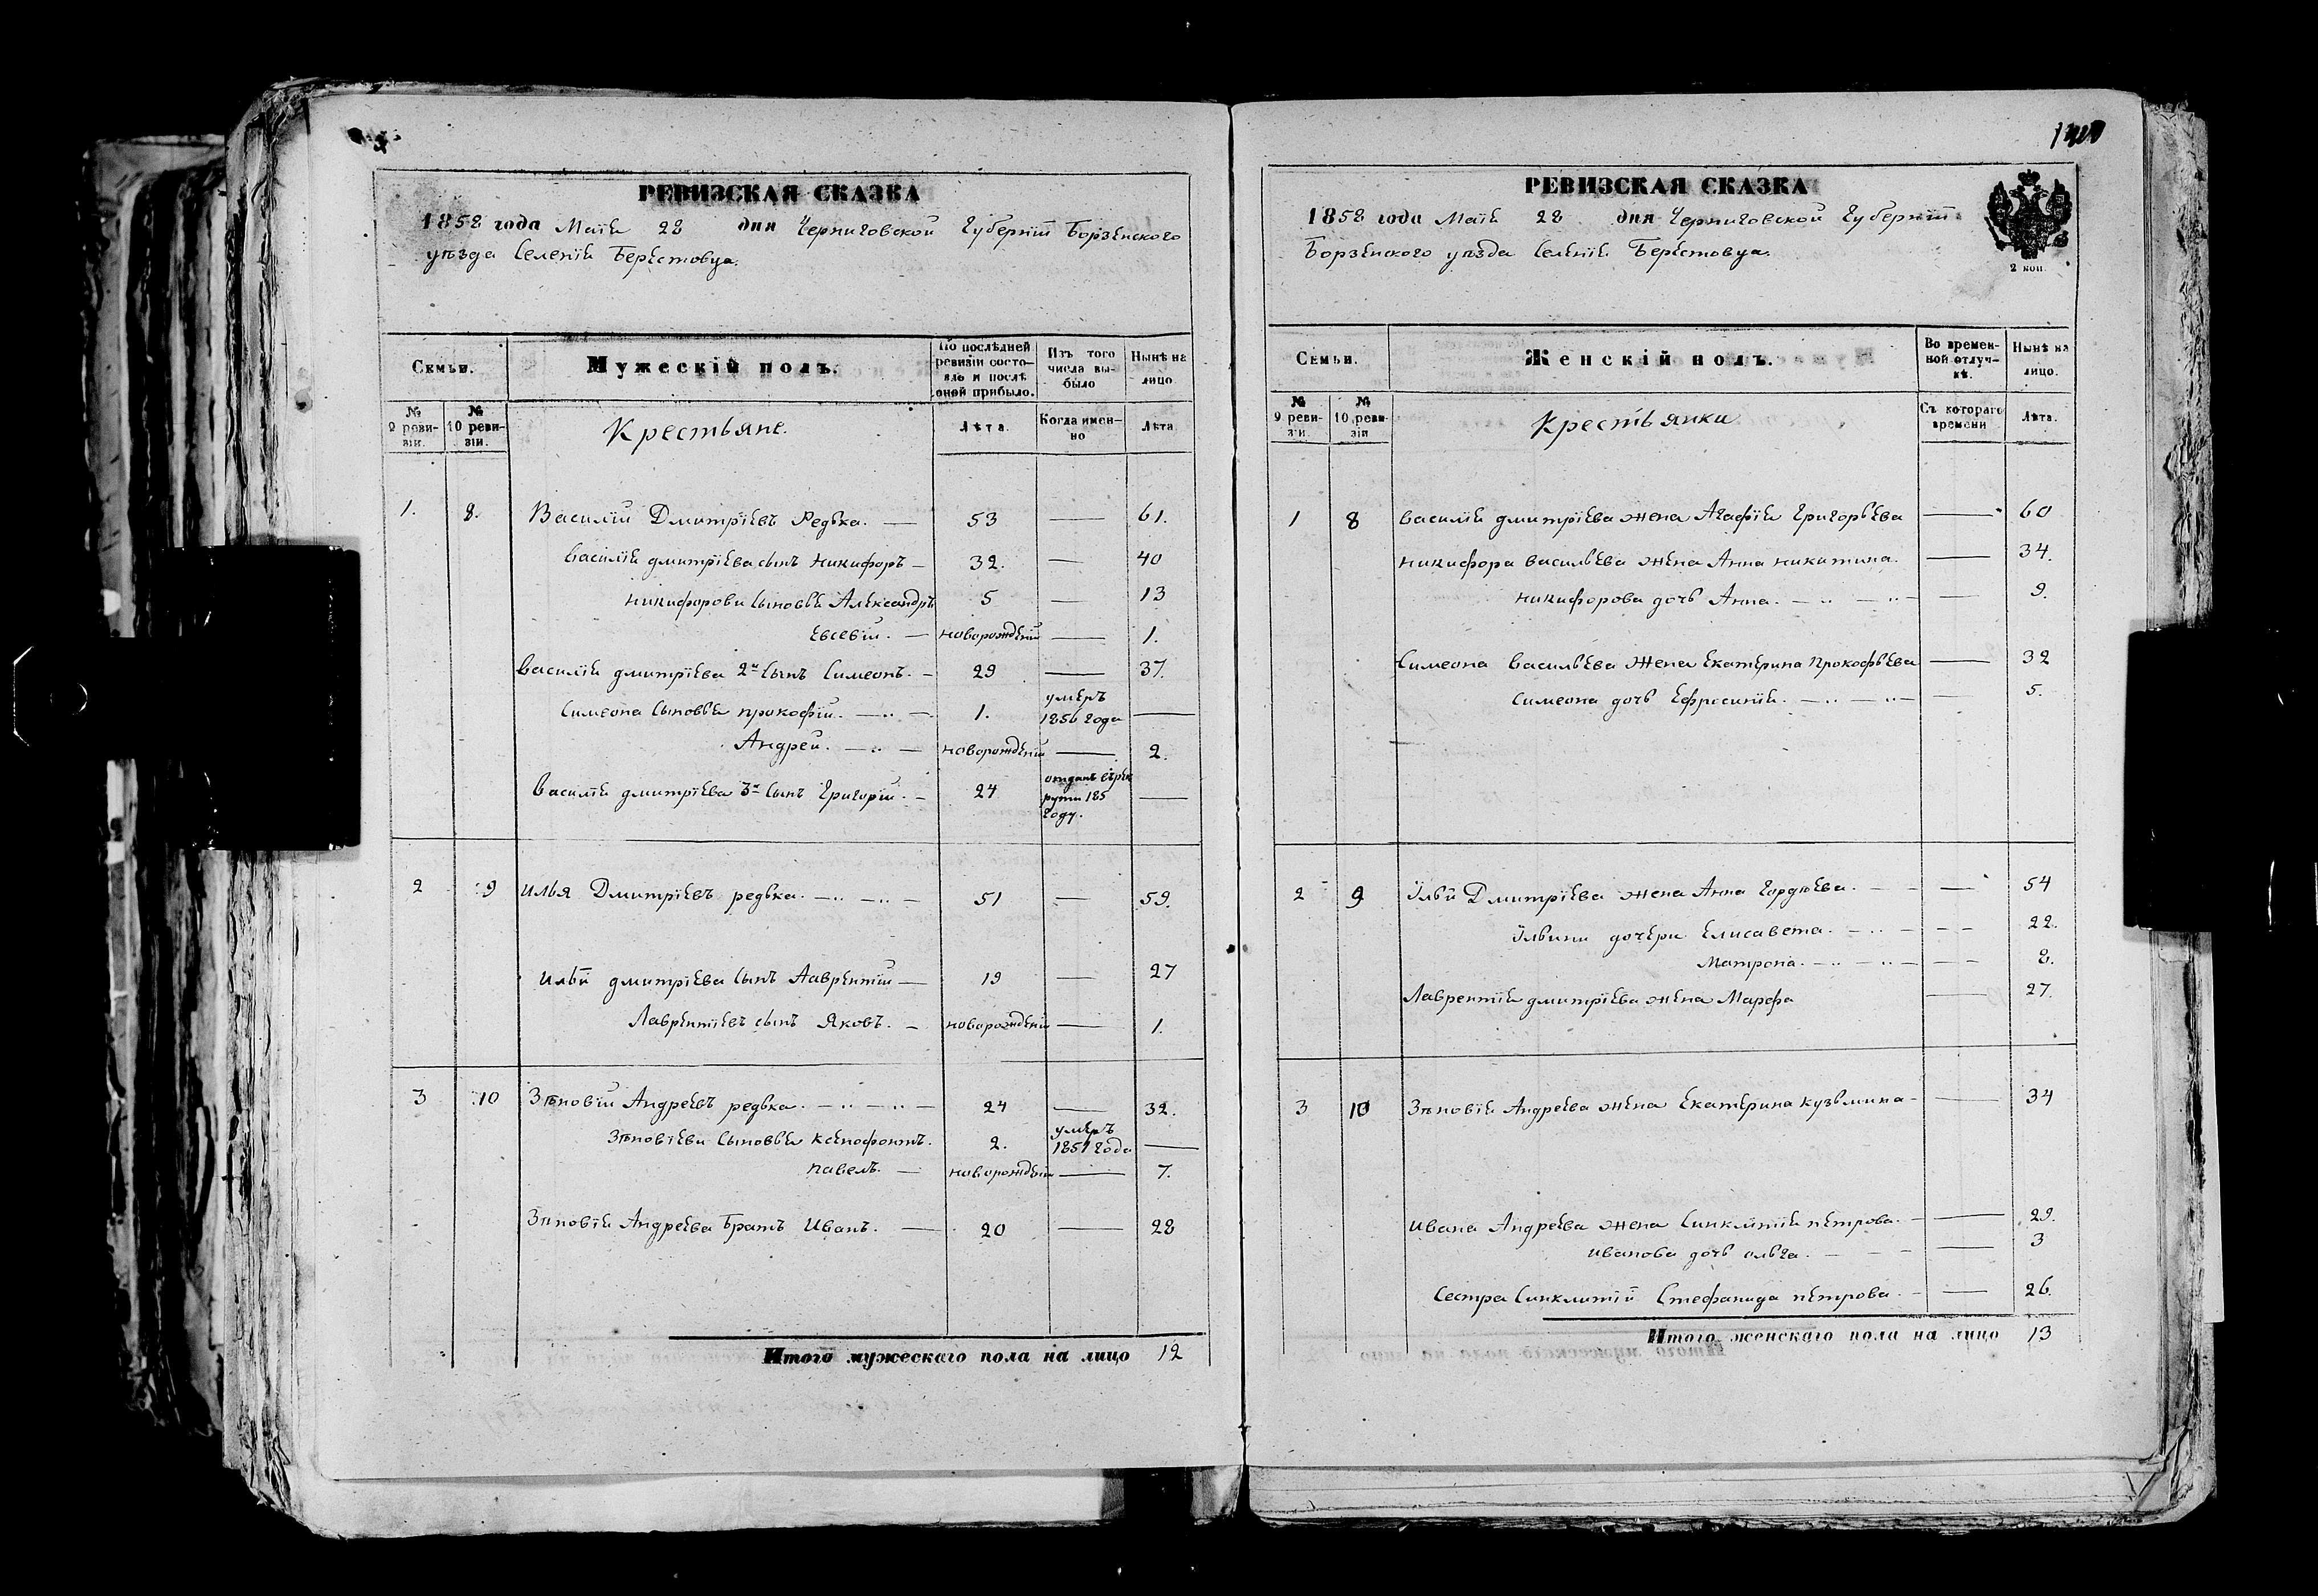 РЕВИЗСКАЯ СКАЗКА
1858 года Маія 28 дня Черниговской Губерніи Борзенского
уѣзда Селенія Берестовца.
Семьи.
Мужескій полъ.
По послѣдней ревизіи состояло и послѣ оной прибыло.
Изъ того числа выбыло
Нынѣ на лицо
№ 9 ревизіи.
№ 10 ревизіи.
Крестьяне.
Лѣта.
Когда именно
Лѣта
1. 8. Василій Дмитріевъ Редька. — 53 — 61.
Василія дмитріева сынъ Никифоръ — 32. — 40
никифорови сыновья Александръ 5 — 13
Евсевій. — новорожденій — 1.
Василія дмитріева 2й сынъ Симеонъ. — 29 — 37.
Симеона сыновья прокофій. — 1. умеръ 1856 года —
Андрей. — новорожденій — 2.
Василія дмитріева 3й сынъ Григорій. — 24 отданъ рекруты 185 году. —
2 9 Илья Дмитріевъ редька. — 51 — 59.
Ильи дмитріева сынъ Лаврентій — 19 — 27
Лаврентіевъ сынъ Яковъ. — новорожденій — 1.
3 10 Зѣновій Андреевъ редька. — 24 — 32.
Зѣновіеви сыновья ксенофонтъ. 2. умеръ 1851 года —
павелъ. — новорожденій — 7.
Зѣновія Андреева Братъ Иванъ. — 20 — 28
Итого мужескаго пола на лицо 12
РЕВИЗСКАЯ СКАЗКА
1858 года Маія 28 дня Черниговской Губерніи
Борзенского уѣзда Селенія Берестовца.
2 коп.
Семьи.
Женскій полъ.
Во временной отлучкѣ.
Нынѣ на лицо.
№ 9 ревизіи.
№ 10 ревизіи
Крестьянки
Съ котораго времени
Лѣта.
1 8 Василія дмитріева жена Агафія Григорьева — 60
никифора васильева жена Анна никитина. — 34.
никифорова дочь Анна. — 9.
Симеона васильева жена Екатерина Прокофьева — 32
Симеона дочь Ефросинія. — 5.
2 9 Ильи Дмитріева жена Анна Гордѣева. — 54
Ильини дочери Елисавета. — 22.
Матрона. — 8.
Лаврентія дмитріева жена Марфа — 27.
3 10 Зѣновія Андреева жена Екатерина кузьмина — 34
Ивана Андреева жена Синклитія петрова. — 29.
иванова дочь ольга. — 3
Сестра Синклитіи Стефанида петрова. — 26.
Итого женскаго пола на лицо 13